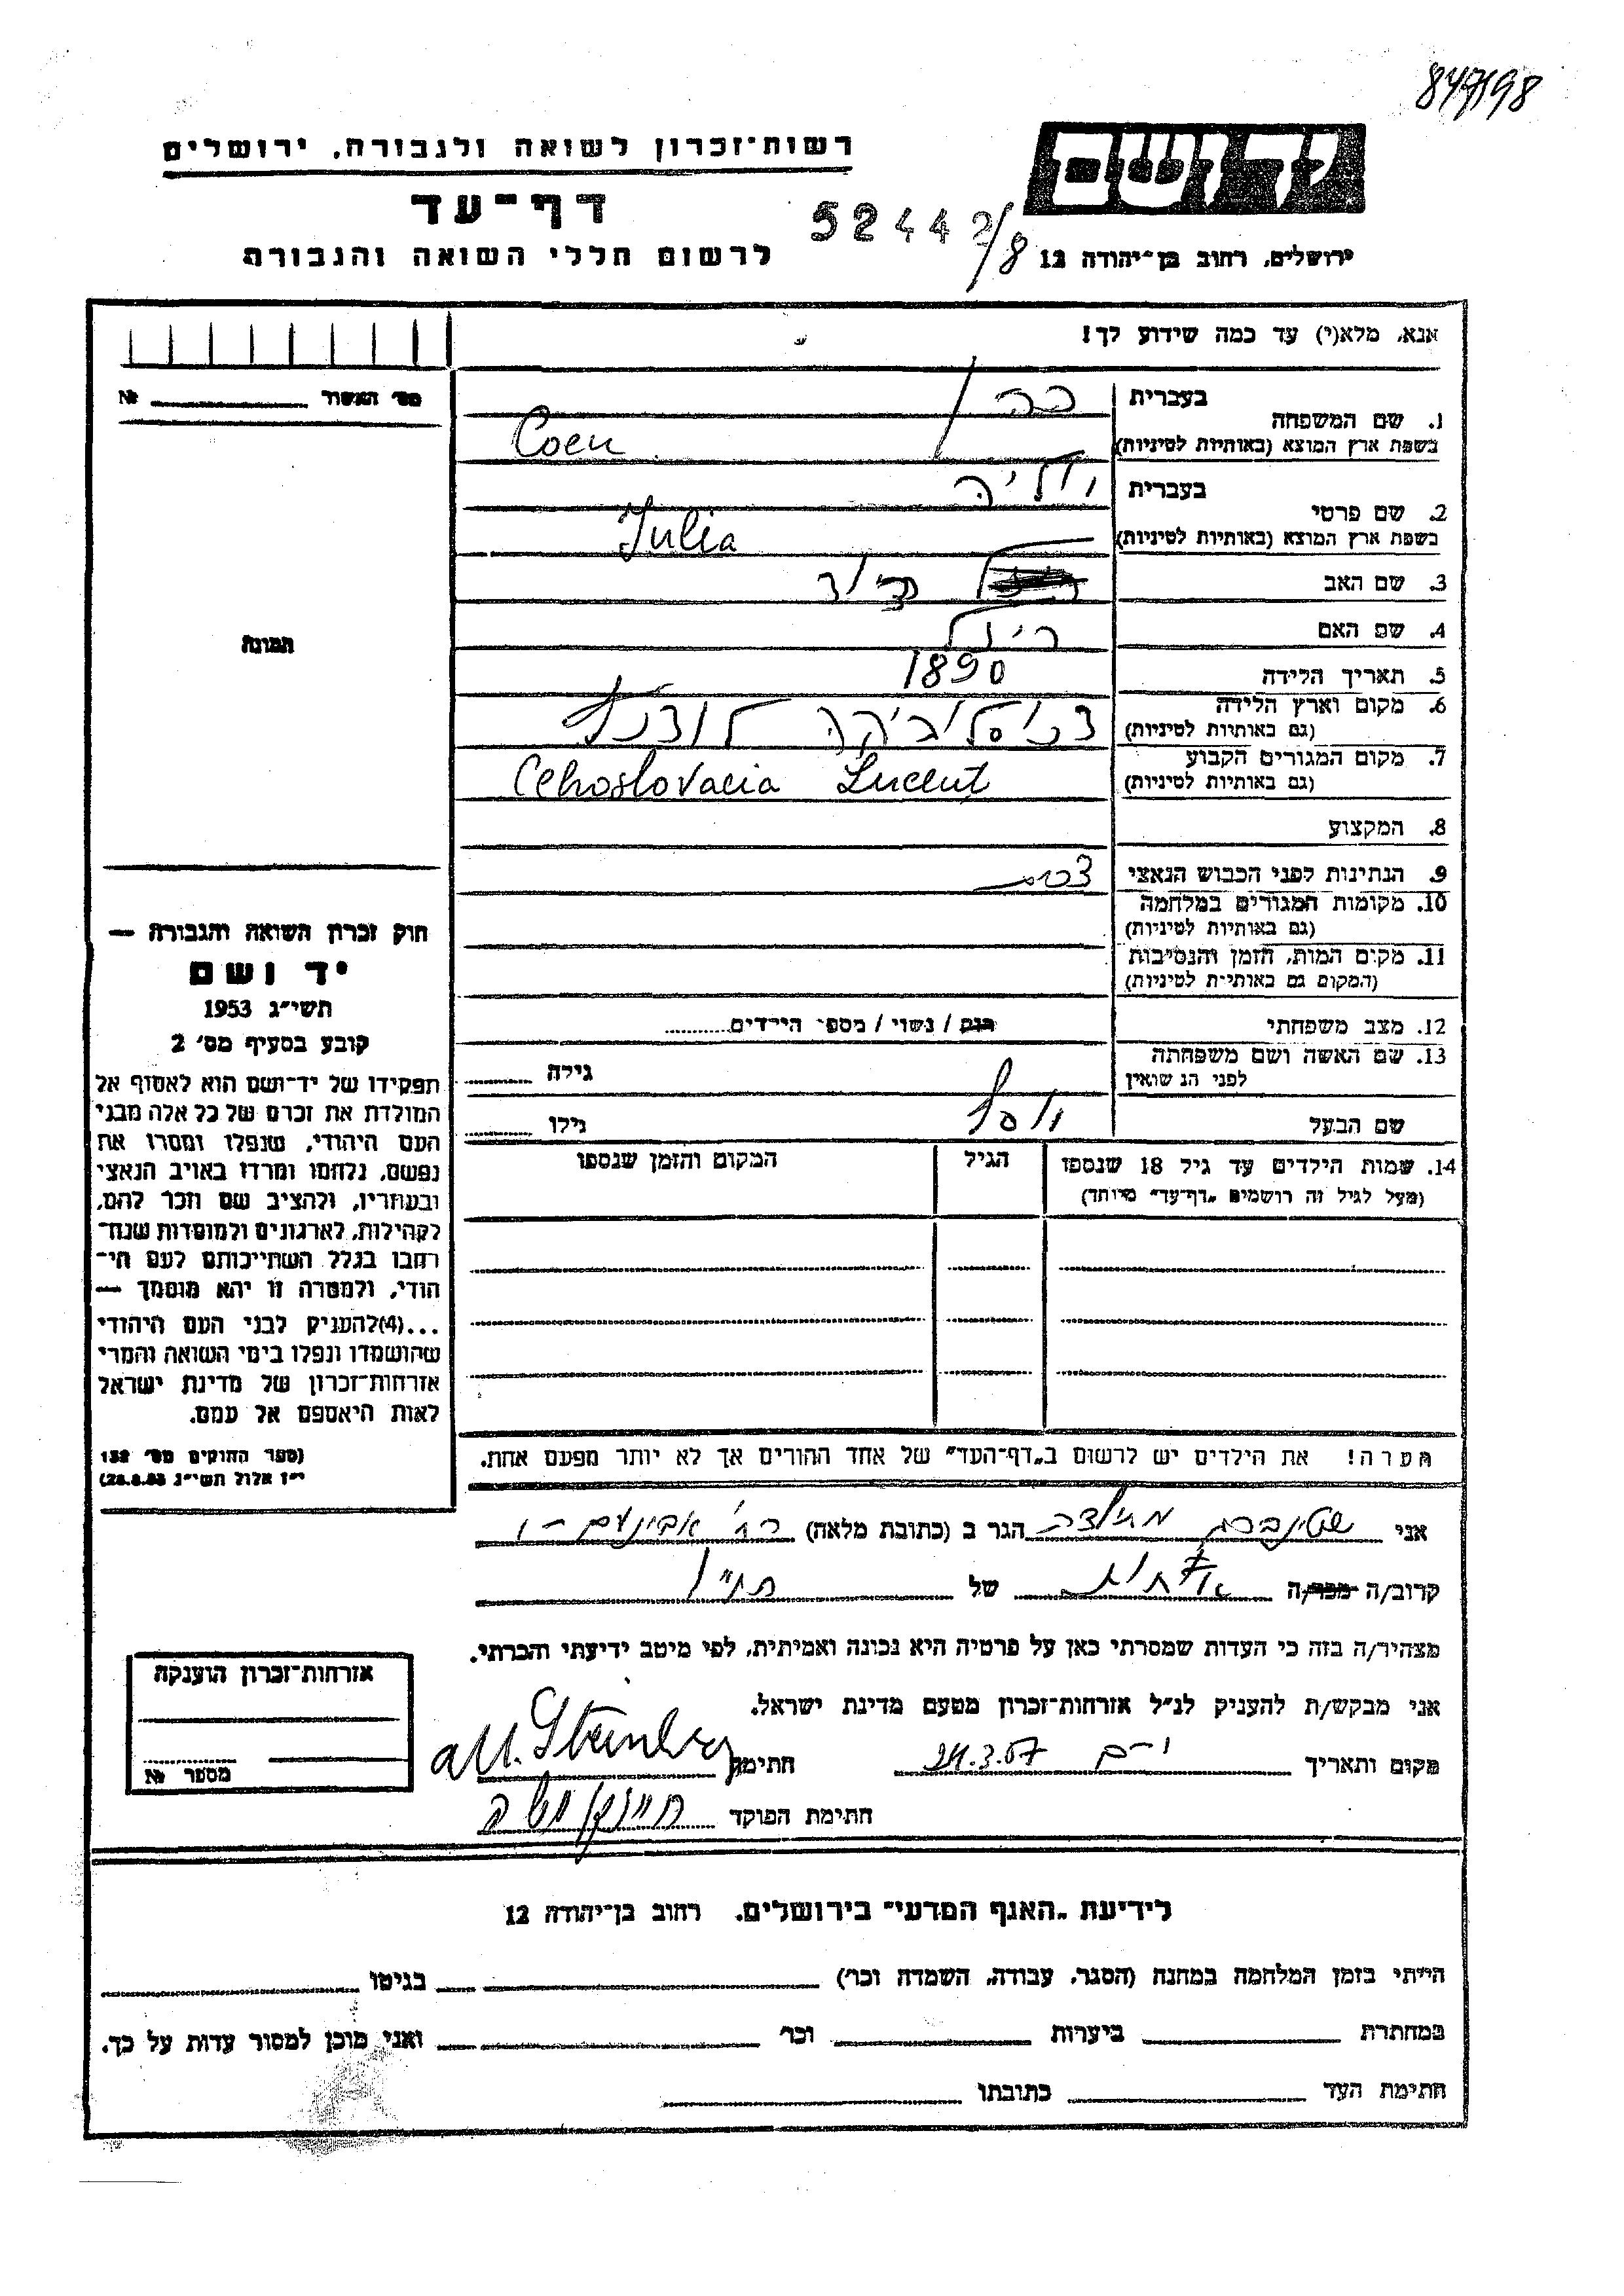 847198
רשות-זכרון לשואה ולגבורה, ירושלים
דף-עד
לרשום חללי השואה והגבורה
52442/8
יד ושם
ירושלים, רחוב בן-יהודה 12
אנא, מלא(י) עד כמה שידוע לך!
מס׳ האשור № 
1. שם המשפחה
בעברית כהן
בשפת ארץ המוצא (באותיות לטיניות) Coen
2. שם פרטי
בעברית יוליה
בשפת ארץ המוצא (באותיות לטיניות) Julia
3. שם האב
4. שם האם
5. תאריך הלידה 1890
6. מקום וארץ הלידה
(גם באותיות לטיניות)
7. מקום המגורים הקבוע
(גם באותיות לטיניות) Cehoslovacia Lucent
8. המקצוע
9. הנתינות לפני הכבוש הנאצי
10. מקומות המגורים במלחמה
(גם באותיות לטיניות)
11. מקום המות, הזמן והנסיבות
(המקום גם באותיות לטיניות)
12. מצב משפחתי רווק / נשוי / מספר הילדים
13. שם האשה ושם משפחתה
לפני הנשואין גילה
שם הבעל יוסף גילו
14. שמות הילדים עד גיל 18 שנספו
(מעל לגיל זה רושמים „דף-עד" מיוחד)
הגיל
המקום והזמן שנספו
הערה! את הילדים יש לרשום ב„דף-העד" של אחד ההורים אך לא יותר מפעם אחת.
תמונה
חוק זכרון השואה והגבורה —
יד ושם
תשי״ג 1953
קובע בסעיף מס׳ 2
תפקידו של יד-ושם הוא לאסוף אל
המולדת את זכרם של כל אלה מבני
העם היהודי, שנפלו ומסרו את
נפשם, נלחמו ומרדו באויב הנאצי
ובעוזריו, ולהציב שם וזכר להם,
לקהילות, לארגונים ולמוסדות שנח-
רחבו בגלל השתייכותם לעם הי-
הודי, ולמטרה זו יהא מוסמך —
...(4)להעניק לבני העם היהודי
שהושמדו ונפלו בימי השואה והמרי
אזרחות-זכרון של מדינת ישראל
לאות היאספם אל עמם.
(ספר החוקים מס׳ 132
י״ז אלול תשי״ג 28.8.53)
אני שטינברג הגר ב (כתובת מלאה) רח׳ אבינעם
קרוב/ה מכר/ה של
מצהיר/ה בזה כי העדות שמסרתי כאן על פרטיה היא נכונה ואמיתית, לפי מיטב ידיעתי והכרתי.
אני מבקש/ת להעניק לנ״ל אזרחות-זכרון מטעם מדינת ישראל.
מקום ותאריך י-ם 24.3.57 חתימה M. Steinberg
חתימת הפוקד
אזרחות-זכרון הוענקה
מספר №
לידיעת „האגף המדעי" בירושלים, רחוב בן-יהודה 12
הייתי בזמן המלחמה במחנה (הסגר, עבודה, השמדה וכו׳) בגיטו
במחתרת ביערות וכו׳ ואני מוכן למסור עדות על כך.
חתימת העד כתובתו